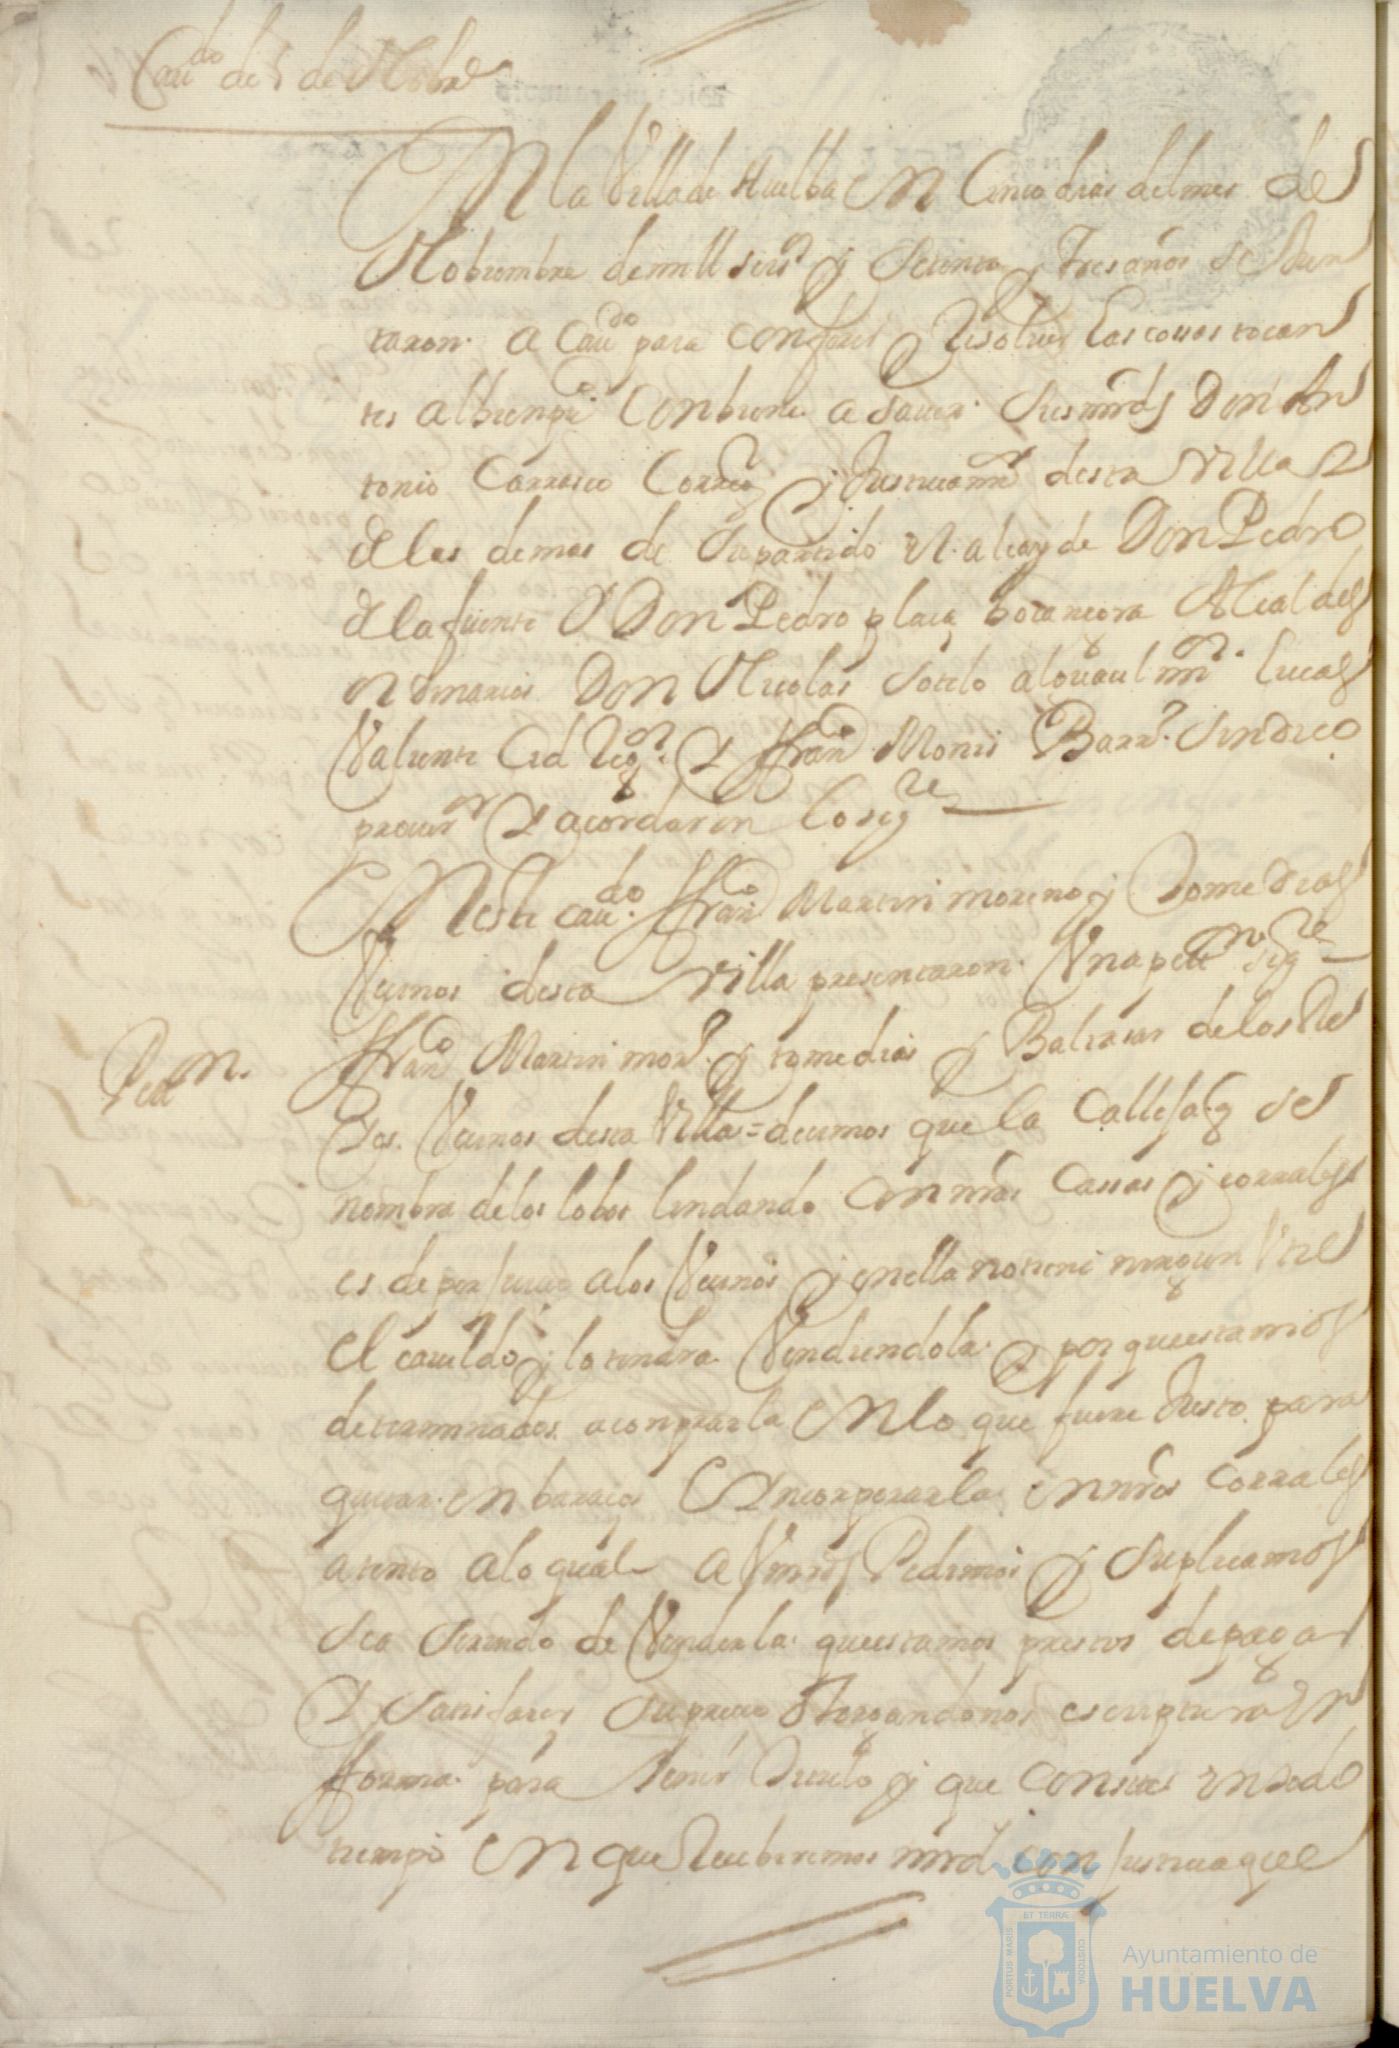 Caudo de 5 de Nobre
En la Villa de Huelba en Cinco dias del mes de
Nobiembre de mill seisos y setenta y tres años se Jun
taron a Caudo para conferir y Resolver las cossas tocan
tes al bien puco Conbiene a saver sus mrds Don An
tonio Carrasco Corregor y Justicia mor desta villa y
de las demas de su partido el alcayde Don Pedro
de la fuente y Don Pedro plaça bocanegra Alcaldes
ordinarios Don Nicolas sotelo alguacil mor Lucas
Valiente Cid Regor y ffranco Monis Barro sindico
procuror y acordaron lo sigte
En este caudo ffranco Martin moreno y Tome dias
Vecinos desta villa presentaron Una petton sigte
Petn.
ffranco Martin moro y tome dias y Baltasar de los Re
yes Vecinos desta Villa = decimos que la Calleja q se
nombra de los lobos lindando con nros cassas y corrales
es de perjuicio a los Vecinos y en ella no tiene ningun Util
el cauildo y lo tendra Vendiendola y por que estamos
determinados a conprarla en lo que fuere Justo para
quitar enbaraços y Yncorporarla en nros corrales
atento a lo qual a Vmrds Pedimos y suplicamos
sea seruido de Venderla que estamos prestos de pagar
y satisfacer su precio otorgandonos escriptura en
forma para tener titulo y que conste en todo
tiempo en que Reciberemos mrd con justicia que
ET TERRÆ
PORTUS MARIS
CUSTODIA
Ayuntamiento de
HUELVA